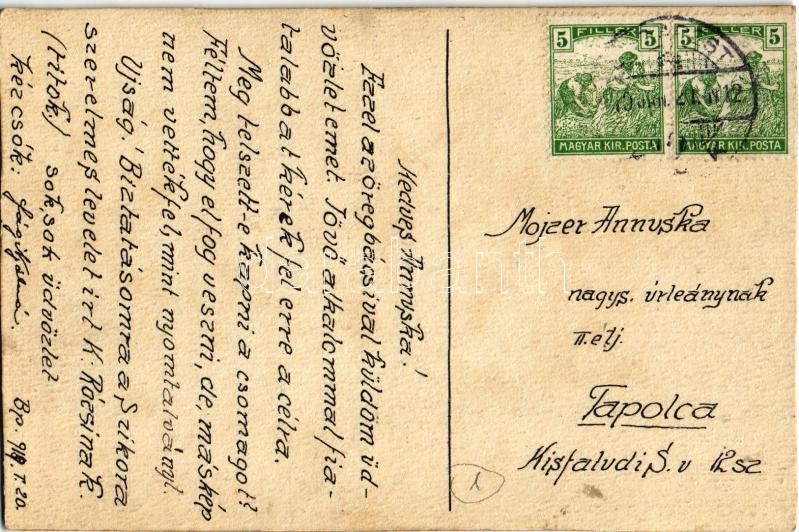 Kedves Annuska!
Ezzel az öreg bácsival küldöm üd-
vözletemet. Jövő alkalommal fia-
talabbat kérek fel erre a célra.
Meg tetszett-e kapni a csomagot?
Féltem, hogy elfog veszni, de, másképp
nem vették fel, mint nyomtatványt.
Ujság! Biztatásomra a Szikora
szerelmes levelet irt K. Rózsinak.
(titok.) sok, sok üdvözlet
kézcsók:
Bp. 919. I. 20.
5 FILLÉR 5
MAGYAR KIR. POSTA
5 FILLÉR 5
MAGYAR KIR. POSTA
Mojzer Annuska
nagys. úrleánynak
II. elj.
Tapolca
Kisfaludi S. u 12 sz
1
darabanth